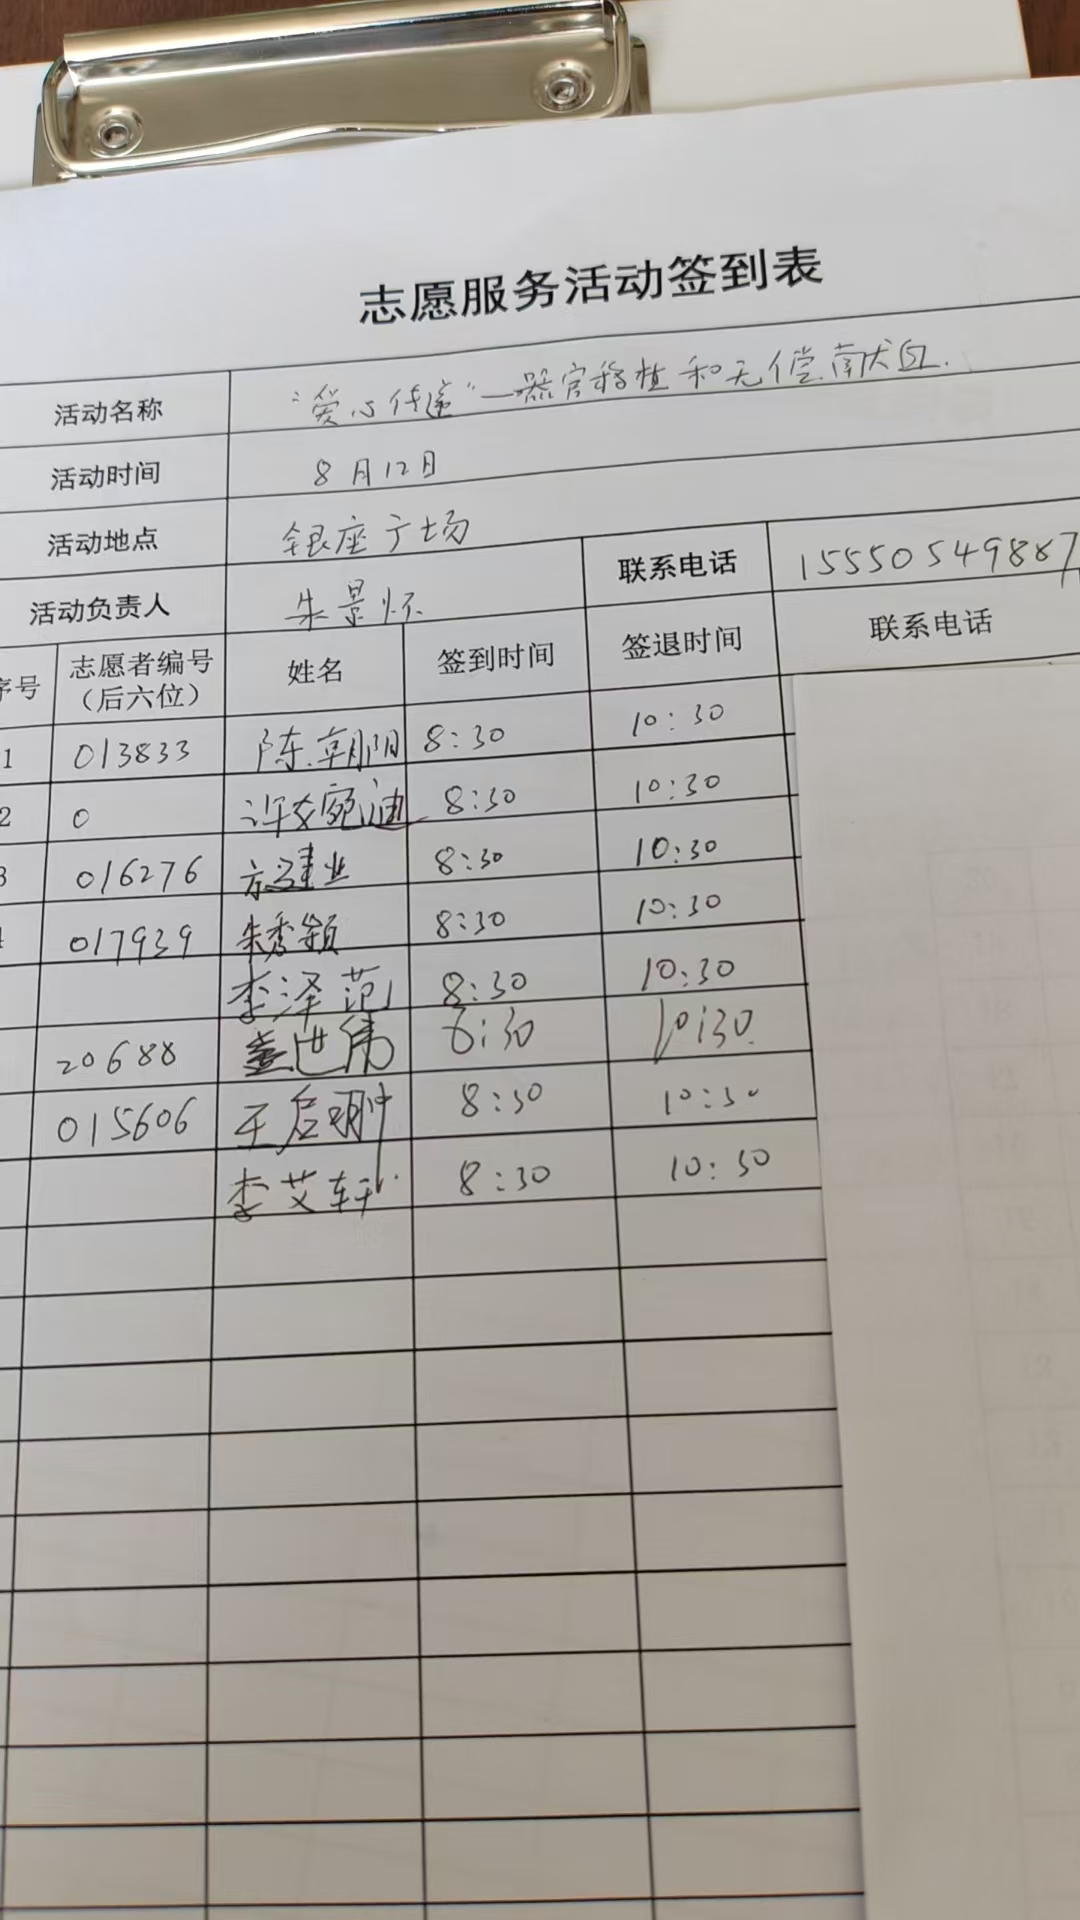 志愿服务活动签到表
活动名称 "爱心传递"—器官移植和无偿献血.
活动时间 8月12日
活动地点 银座广场
活动负责人 朱景怀 联系电话 15550549887
序号 志愿者编号（后六位） 姓名 签到时间 签退时间 联系电话
1 013833 陈朝阳 8:30 10:30
2 0 8:30 10:30
3 016276 方建业 8:30 10:30
4 017939 朱秀颖 8:30 10:30
李泽范 8:30 10:30
20688 董世伟 8:30 10:30
015606 王启翀 8:30 10:30
李艾轩 8:30 10:30